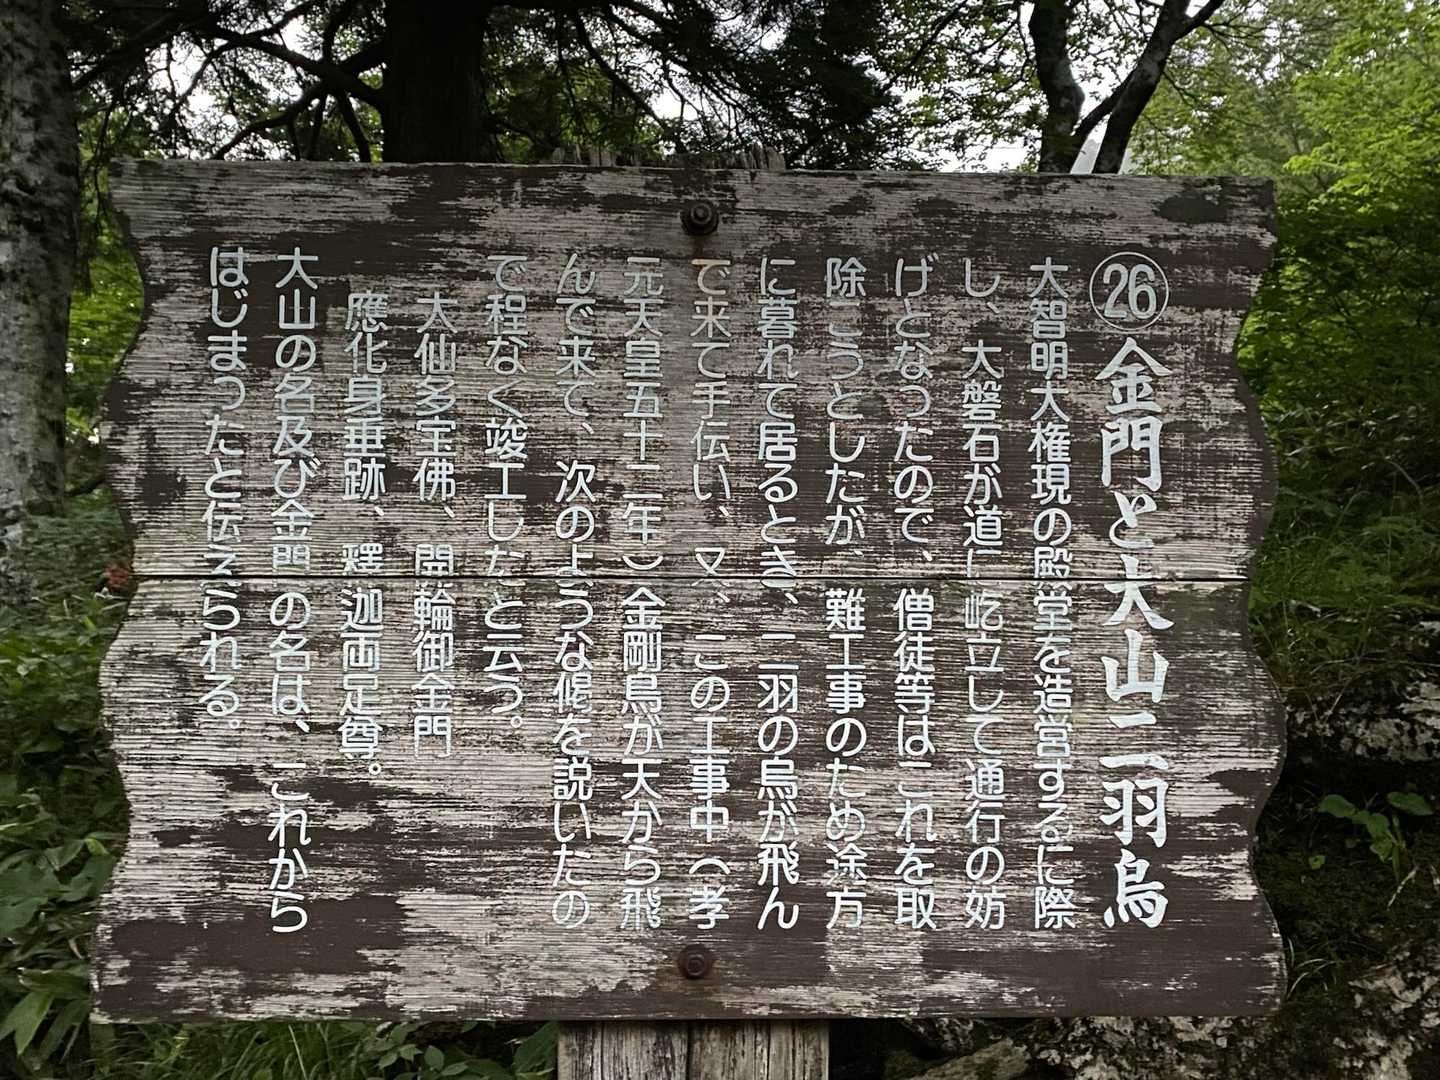 ㉖金門と大山二羽烏
大智明大権現の殿堂を造営するに際
し、大磐石が道に屹立して通行の妨
げとなったので、僧徒等はこれを取
除こうとしたが、難工事のため途方
に暮れて居るとき、二羽の烏が飛ん
で来て手伝い、又、この工事中（孝
元天皇五十二年）金剛鳥が天から飛
んで来て、次のような偈を説いたの
で程なく竣工したと云う。
大仙多宝佛、開輪御金門
應化身垂跡、釋迦両足尊。
大山の名及び金門の名は、これから
はじまったと伝えられる。